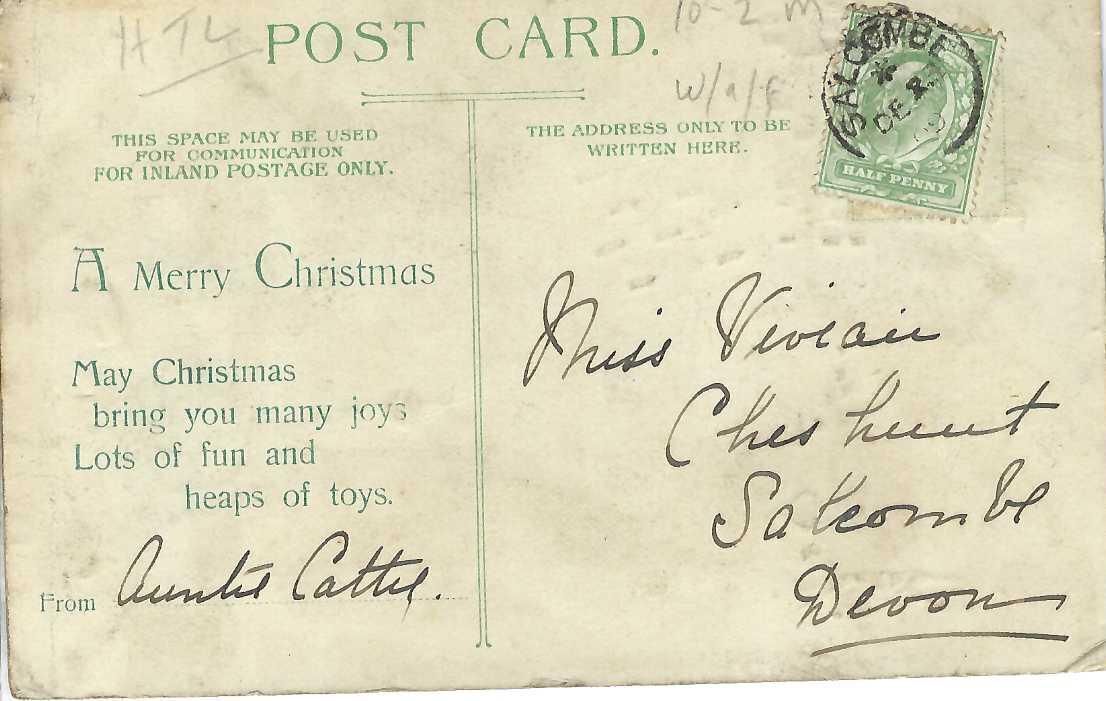 HTL
10-2 M
POST CARD.
W/a/f
THIS SPACE MAY BE USED
FOR COMMUNICATION
FOR INLAND POSTAGE ONLY.
THE ADDRESS ONLY TO BE
WRITTEN HERE.
SALCOMBE
DE
09
HALF PENNY
A Merry Christmas
May Christmas
bring you many joys
Lots of fun and
heaps of toys.
From Auntie Cattie.
Miss Vivian
Cheshunt
Salcombe
Devon